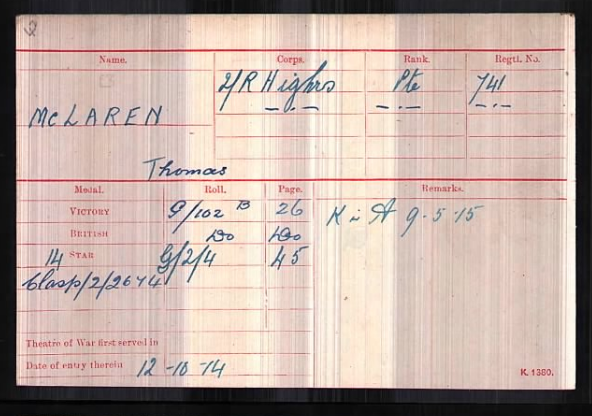 Name. Corps. Rank. Regtl. No.
2/R Highrs Pte 741
McLAREN — . — — . — — . —
Thomas
Medal. Roll. Page. Remarks.
VICTORY G/102 B 26 K in A 9-5-15
BRITISH Do Do
14 STAR G/2/4 45
Clasp/2/2674
Theatre of War first served in
Date of entry therein 12-10-14
K. 1380.